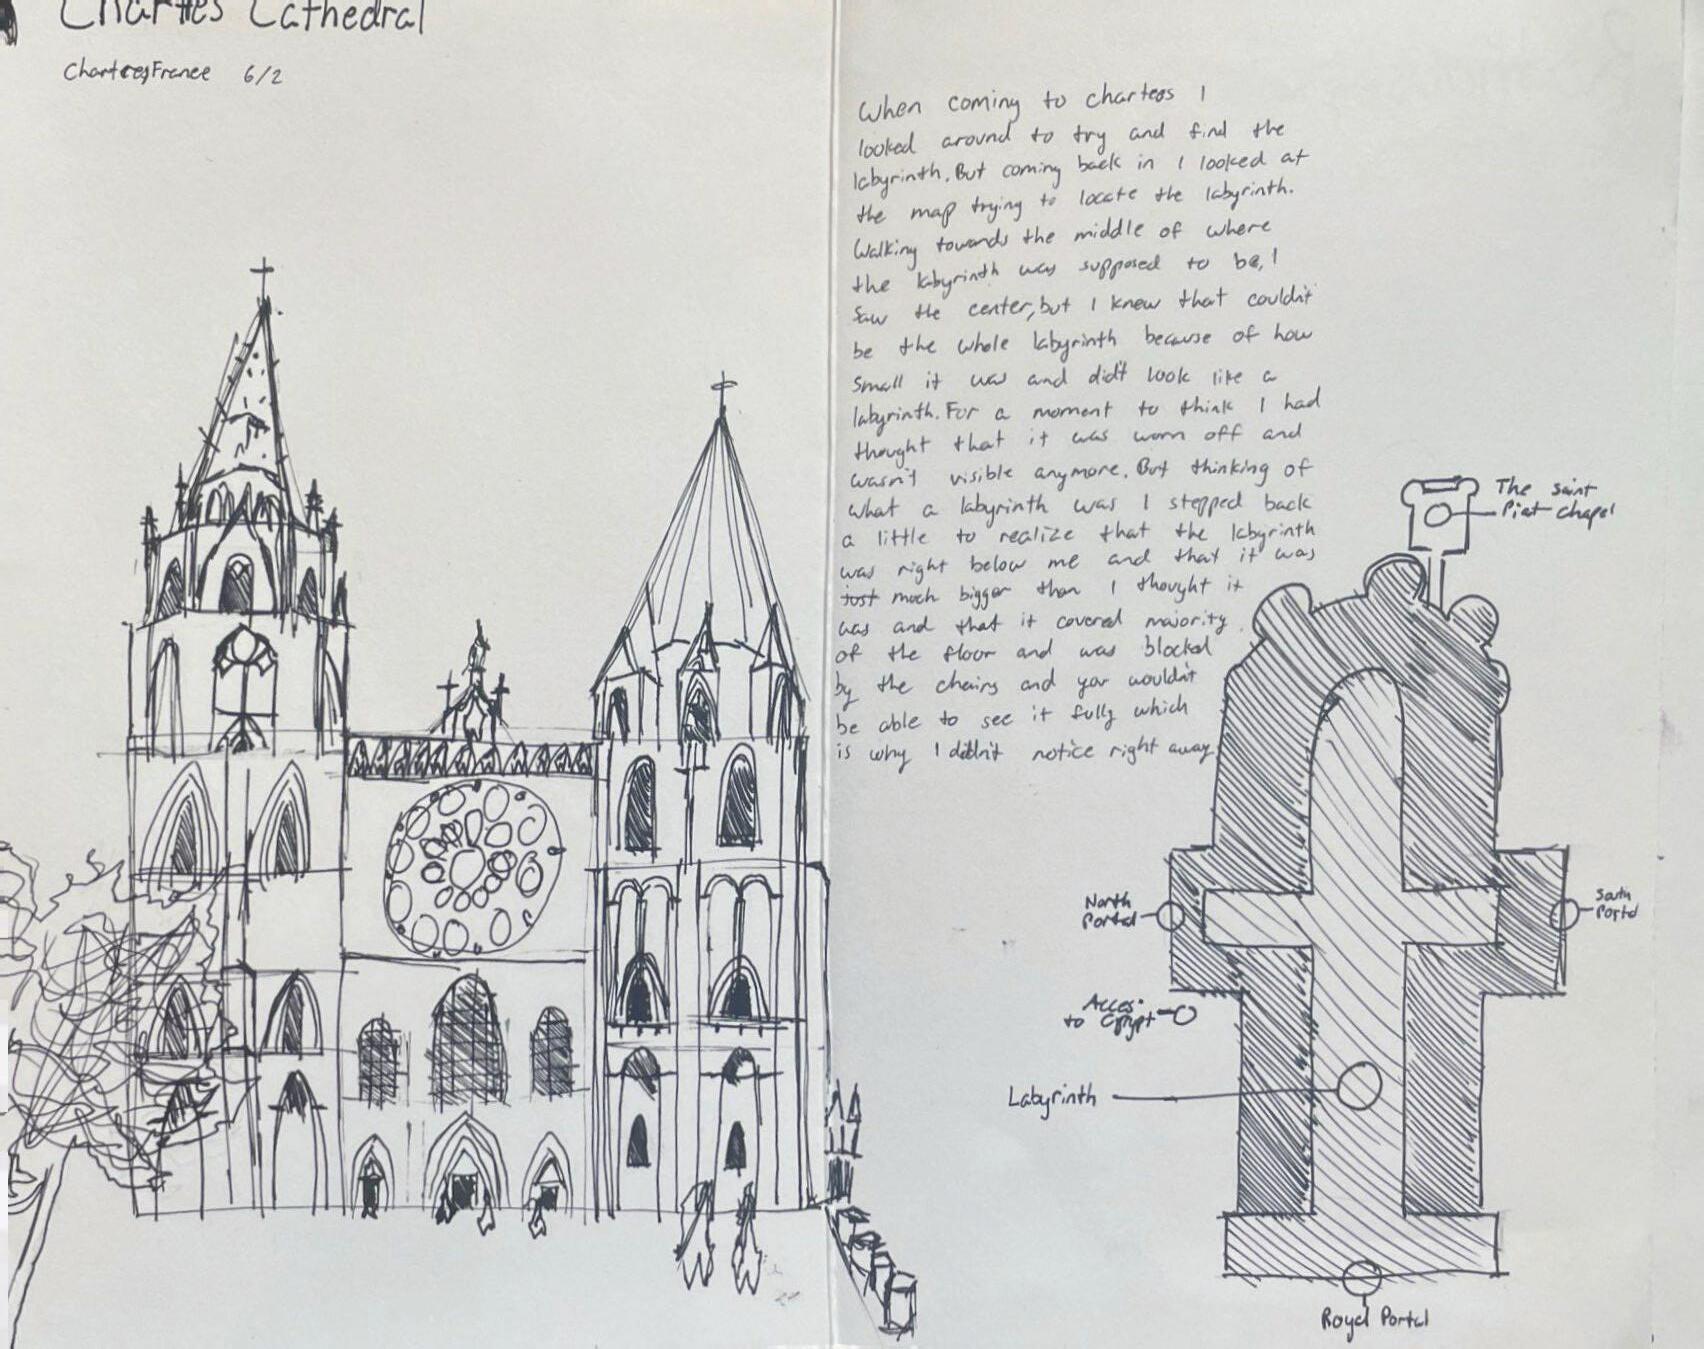 Chartres Cathedral
Chartres, France 6/2
When coming to charteos I
looked around to try and find the
labyrinth. But coming back in I looked at
the map trying to locate the labyrinth.
Walking towards the middle of where
the labyrinth was supposed to be, I
saw the center, but I knew that couldn't
be the whole labyrinth because of how
small it was and didt look like a
labyrinth. For a moment to think I had
thought that it was worn off and
wasn't visible anymore. But thinking of
what a labyrinth was I stepped back
a little to realize that the labyrinth
was right below me and that it was
just much bigger than I thought it
was and that it covered majority
of the floor and was blocked
by the chairs and you wouldn't
be able to see it fully which
is why I didn't notice right away
The saint
Piat chapel
North
Portal
South
Portal
Acces
to Crypt
Labyrinth
Royal Portal